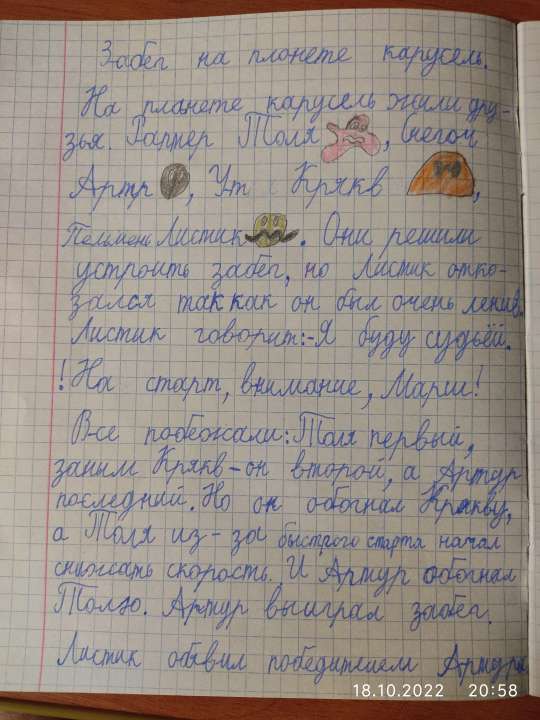 Забег на планете карусель.
На планете карусель жили дру-
зья. Раппер Толя, Снегом
Артр, Ут Крякв,
Пельмень Листик. Они решили
устроить забег, но Листик отка-
зался так как он был очень ленив.
Листик говорит:-Я буду судьёй.
! На старт, внимание, Марш!
Все побежали: Толя первый,
заным Крякв-он второй, а Артур
последний. Но он обогнал Крякву,
а Толя из-за быстрого старта начал
снижать скорость. И Артур обогнал
Толю. Артур выиграл забег.
Листик обявил победителем Артура
18.10.2022 20:58